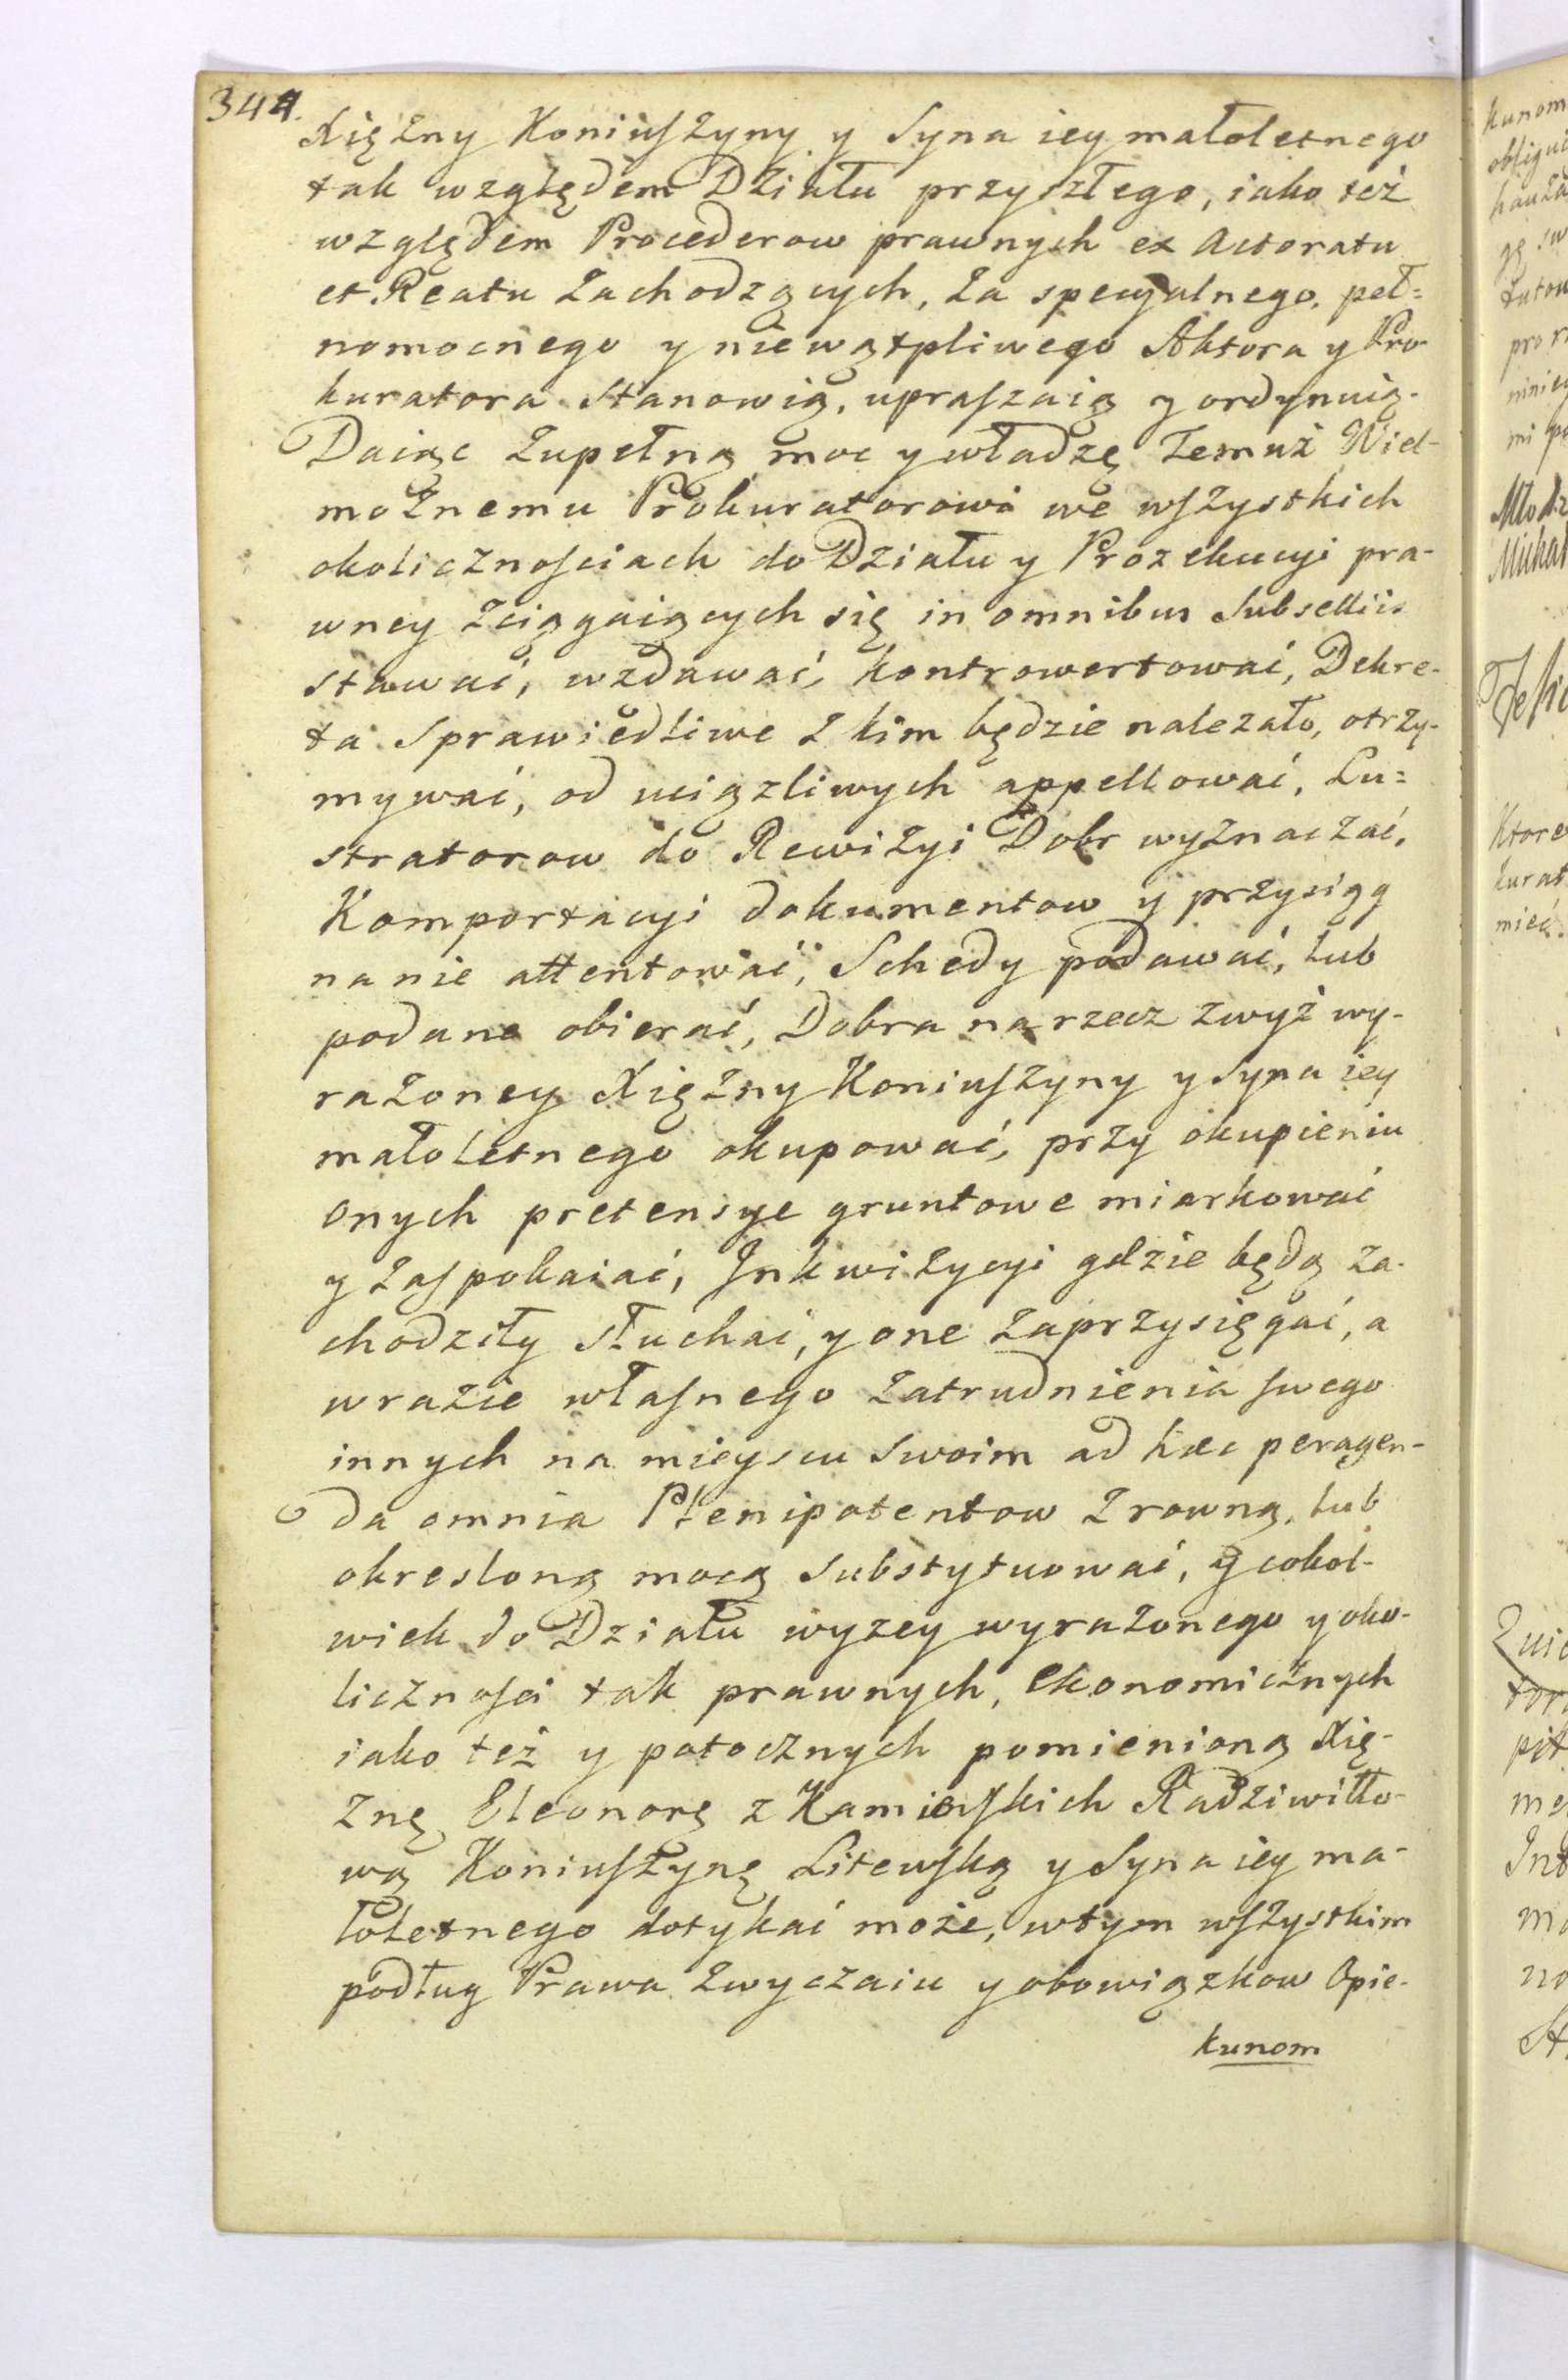 344.
Xiężny Koniuszyny y Syna iey małoletnego
tak względem Działu przyszłego, iako też
względem Procederow prawnych ex Actoratu
et Reatu zachodzących, za specyalnego, peł=
nomocnego y niewątpliwego Aktora y Pro-
kuratora stanowią, upraszaią y ordynuią.
Daiąc zupełną moc y władzę temuż Wiel-
możnemu Prokuratorowi we wszystkich
okolicznosciach do Działu y Prozekucyi pra-
wney ściągaiących się in omnibus Subselliis
stawać, wzdawać, kontrowertować, Dekre-
ta sprawiedliwe z kim będzie nalezało, otrzy-
mywać, od uciązliwych appellować, Lu=
stratorow do Rewizyi Dobr wyznaczać,
Komportacyi dokumentow y przysiąg
na nie attentować, Schedy podawać, lub
podane obierać, Dobra na rzecz zwyż wy-
rażoney Xiężny Koniuszyny y Syna iey
małoletnego okupować, przy okupieniu
onych pretensye gruntowe miarkować
y zaspokaiać, Inkwizycyi gdzie będą za-
chodziły słuchać, y one zaprzysięgać, a
w razie własnego zatrudnienia swego
innych na mieyscu swoim ad hæc peragen-
da omnia Plenipotentow z rowną, lub
okresloną mocą substytuować, y cokol-
wiek do Działu wyzey wyrażonego y oko-
licznosci tak prawnych, ekonomicznych
iako też y potocznych pomienioną Xię-
żnę Eleonorę z Kamieńskich Radziwiłło-
wą Koniuszynę Litewską y Syna iey ma-
łoletnego dotykać może, w tym wszystkim
podług Prawa zwyczaiu y obowiązkow Opie-
kunom